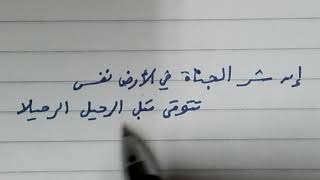 إن شر الجناة في الأرض نفس
تتوقى قبل الرحيل الرحيلا